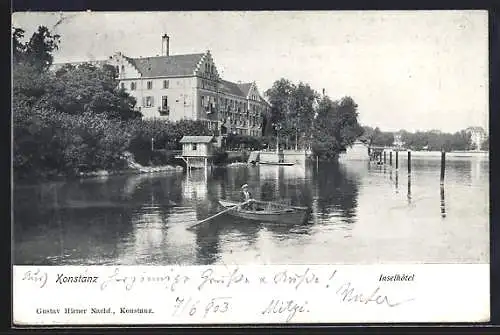 Aus KONSTANZ herzinnige Grüße & Küsse! Inselhôtel
Gustav Hirner Nachf., Konstanz. 7/6 903 Mitzi Vater